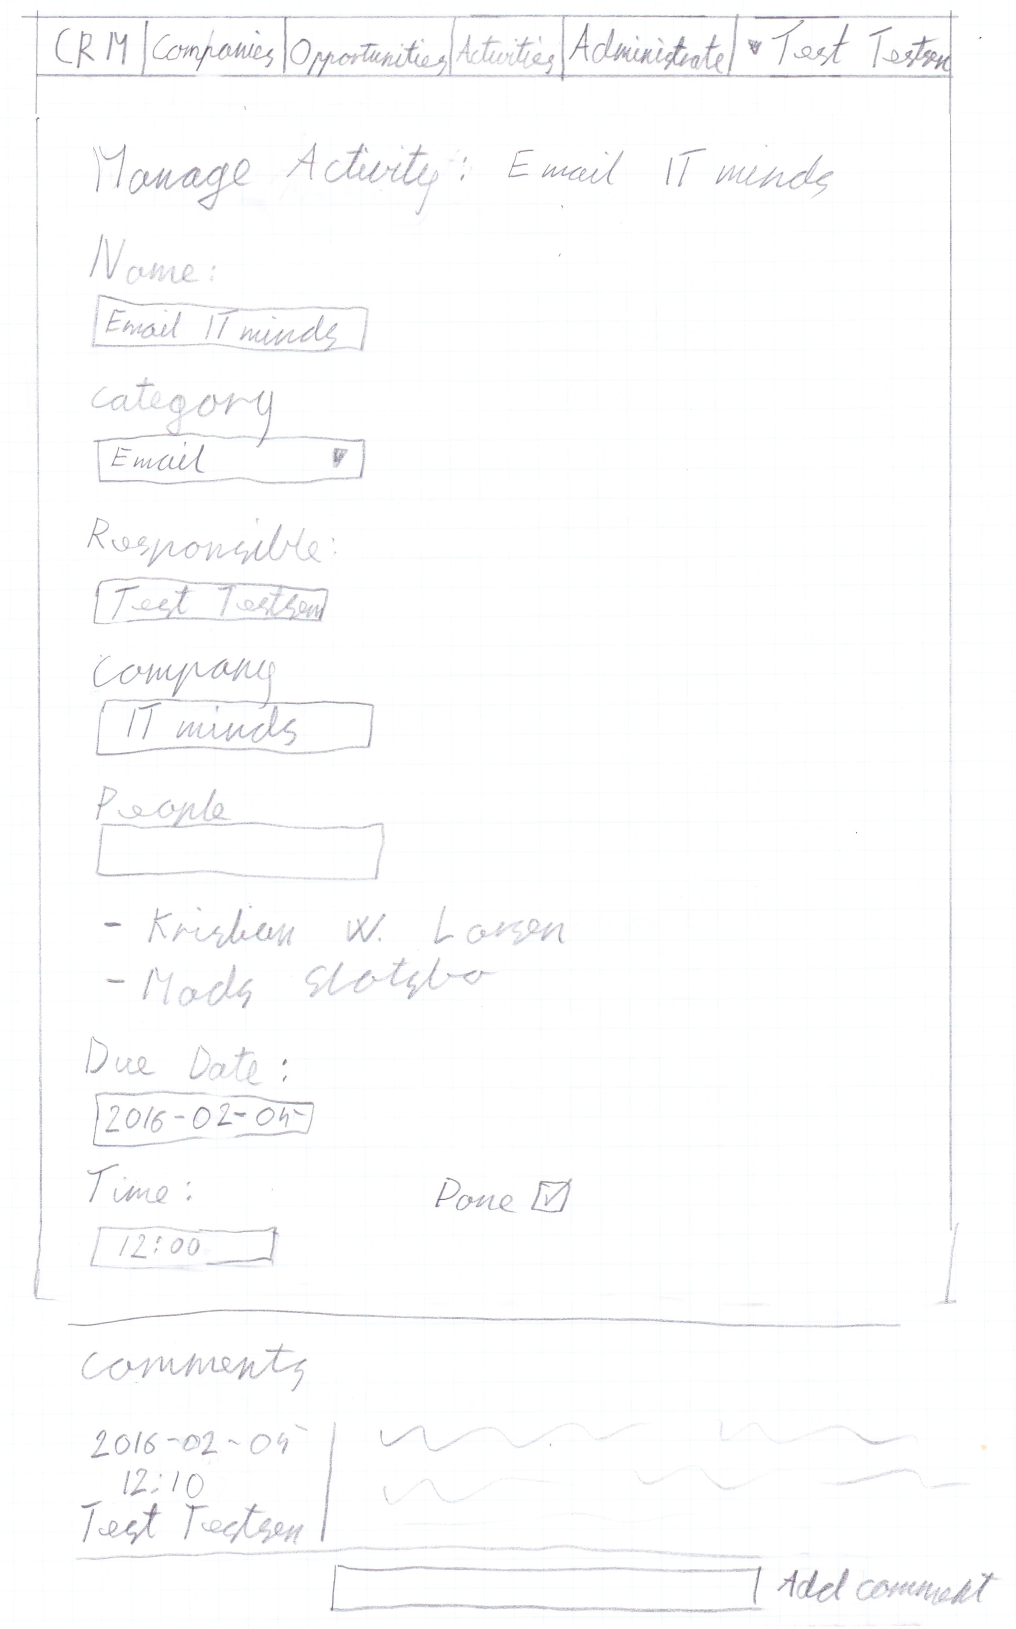 CRM Companies Opportunities Activities Administrate Test Testsen
Manage Activity: Email IT minds
Name:
Email IT minds
Category
Email
Responsible:
Test Testsen
Company
IT minds
People
- Kristian W. Larsen
- Mads Slotsbo
Due Date:
2016-02-05
Time:
Done
12:00
Comments
2016-02-05
12:10
Test Testsen
Add comment